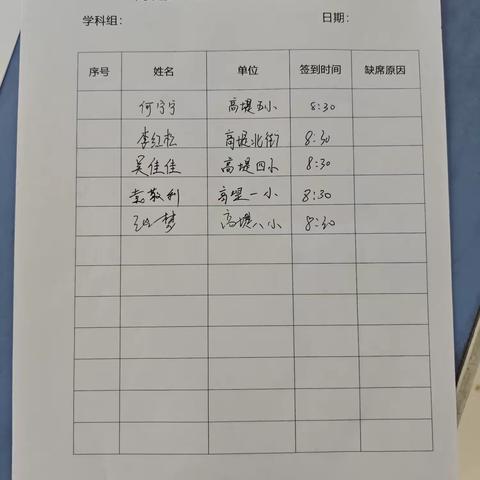 学科组： 日期：
序号 姓名 单位 签到时间 缺席原因
何宁宁 高堤五小 8:30
李红松 高堤北街 8:30
吴佳佳 高堤四小 8:30
利 高堤一小 8:30
梦 高堤八小 8:30